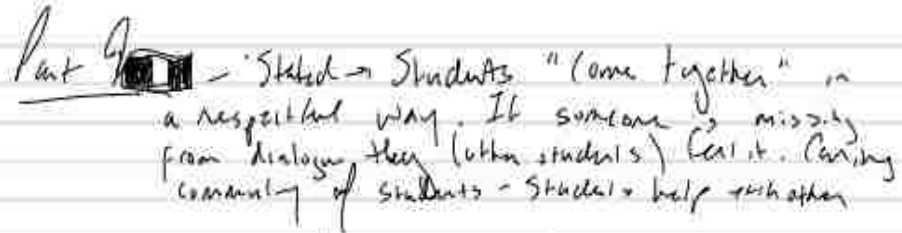 Part - Stated → Students "Come together" in
a respectful way. If someone is missing
from dialogue they (other students) feel it. Caring
community of students - Students help each other